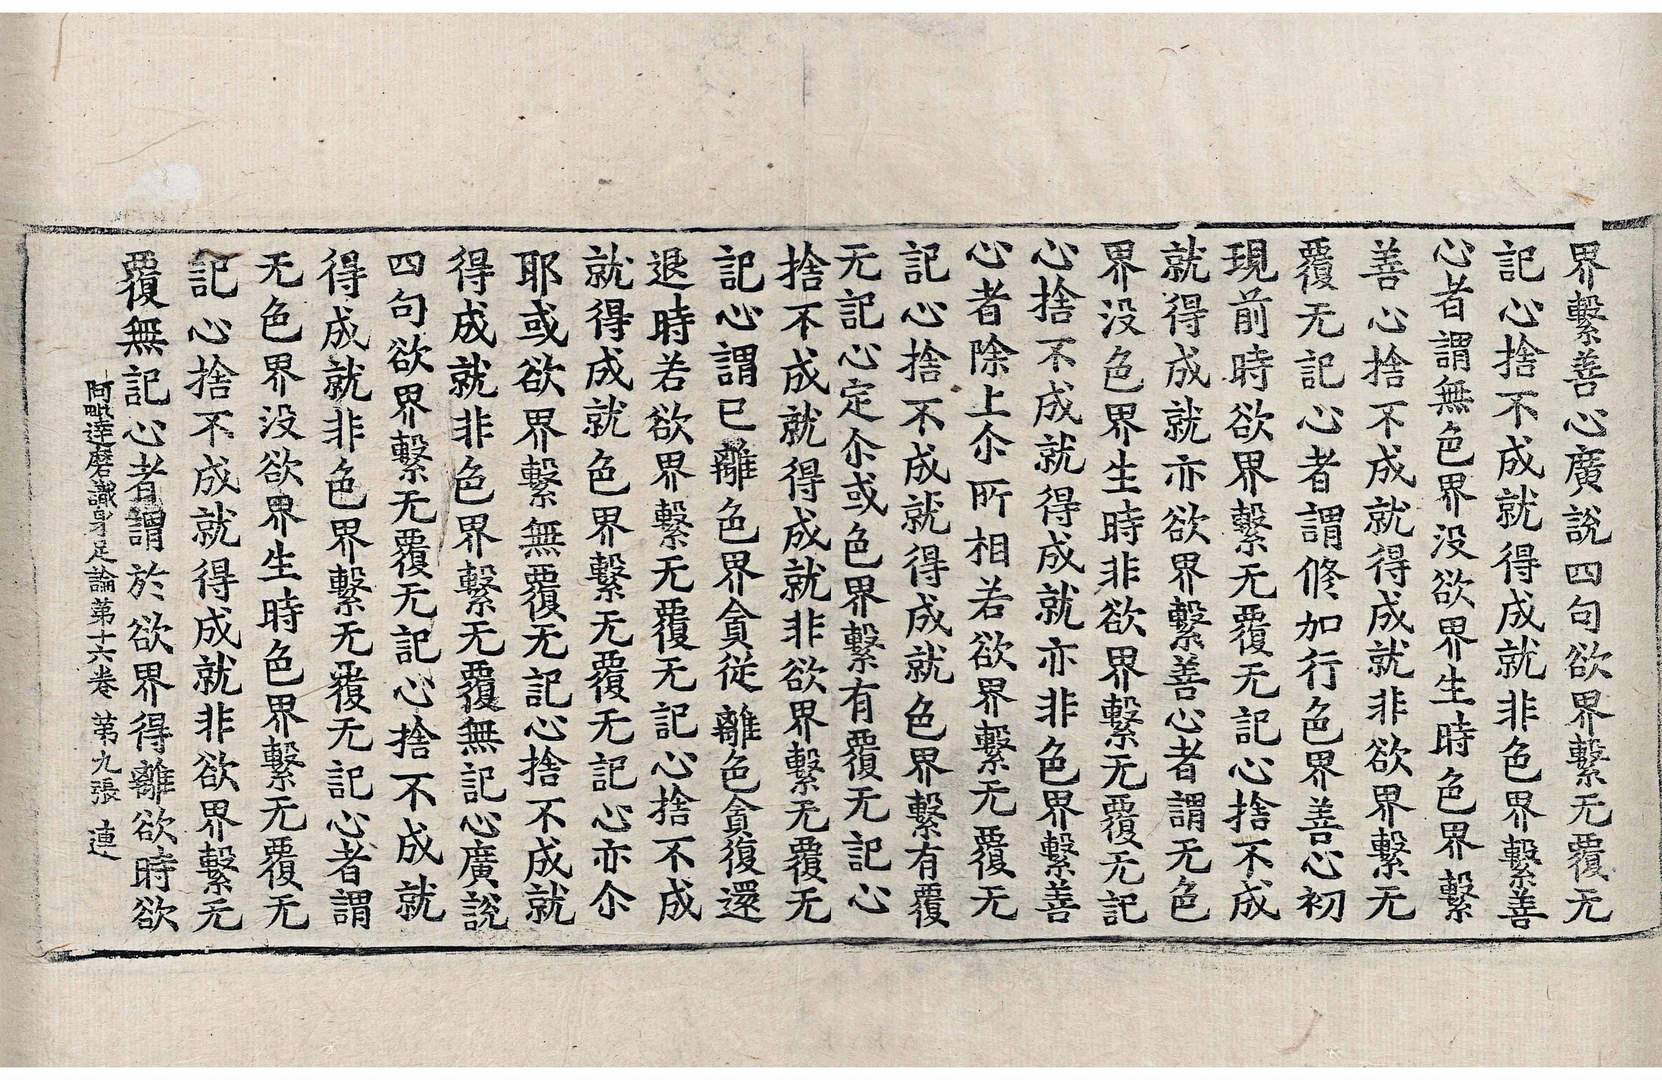 界繫善心廣說四句欲界繫无覆无
記心捨不成就得成就非色界繫善
心者謂無色界没欲界生時色界繫
善心捨不成就得成就非欲界繫无
覆无記心者謂修加行色界善心初
現前時欲界繫无覆无記心捨不成
就得成就亦欲界繫善心者謂无色
界没色界生時非欲界繫无覆无記
心捨不成就得成就亦非色界繫善
心者除上尒所相若欲界繫无覆无
記心捨不成就得成就色界繫有覆
无記心定尒或色界繫有覆无記心
捨不成就得成就非欲界繫无覆无
記心謂已離色界貪從離色貪復還
退時若欲界繫无覆无記心捨不成
就得成就色界繫无覆无記心亦尒
耶或欲界繫無覆无記心捨不成就
得成就非色界繫无覆無記心廣說
四句欲界繫无覆无記心捨不成就
得成就非色界繫无覆无記心者謂
无色界没欲界生時色界繫无覆无
記心捨不成就得成就非欲界繫无
覆無記心者謂於欲界得離欲時欲
阿毗達磨識身足論第十六卷 第九張 連